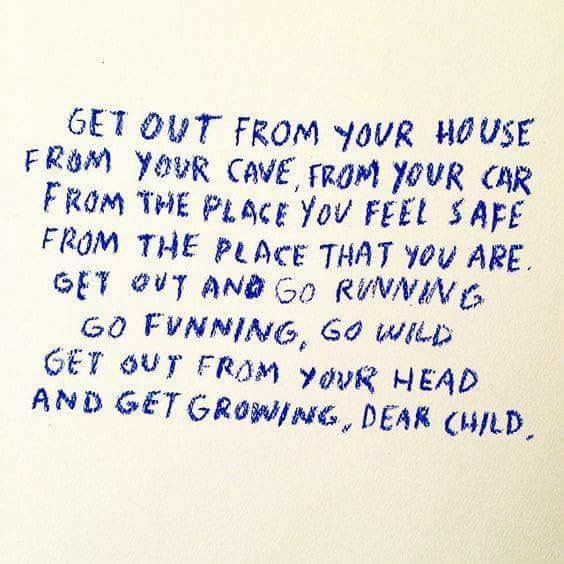 GET OUT FROM YOUR HOUSE
FROM YOUR CAVE, FROM YOUR CAR
FROM THE PLACE YOU FEEL SAFE
FROM THE PLACE THAT YOU ARE.
GET OUT AND GO RUNNING
GO FUNNING, GO WILD
GET OUT FROM YOUR HEAD
AND GET GROWING, DEAR CHILD.